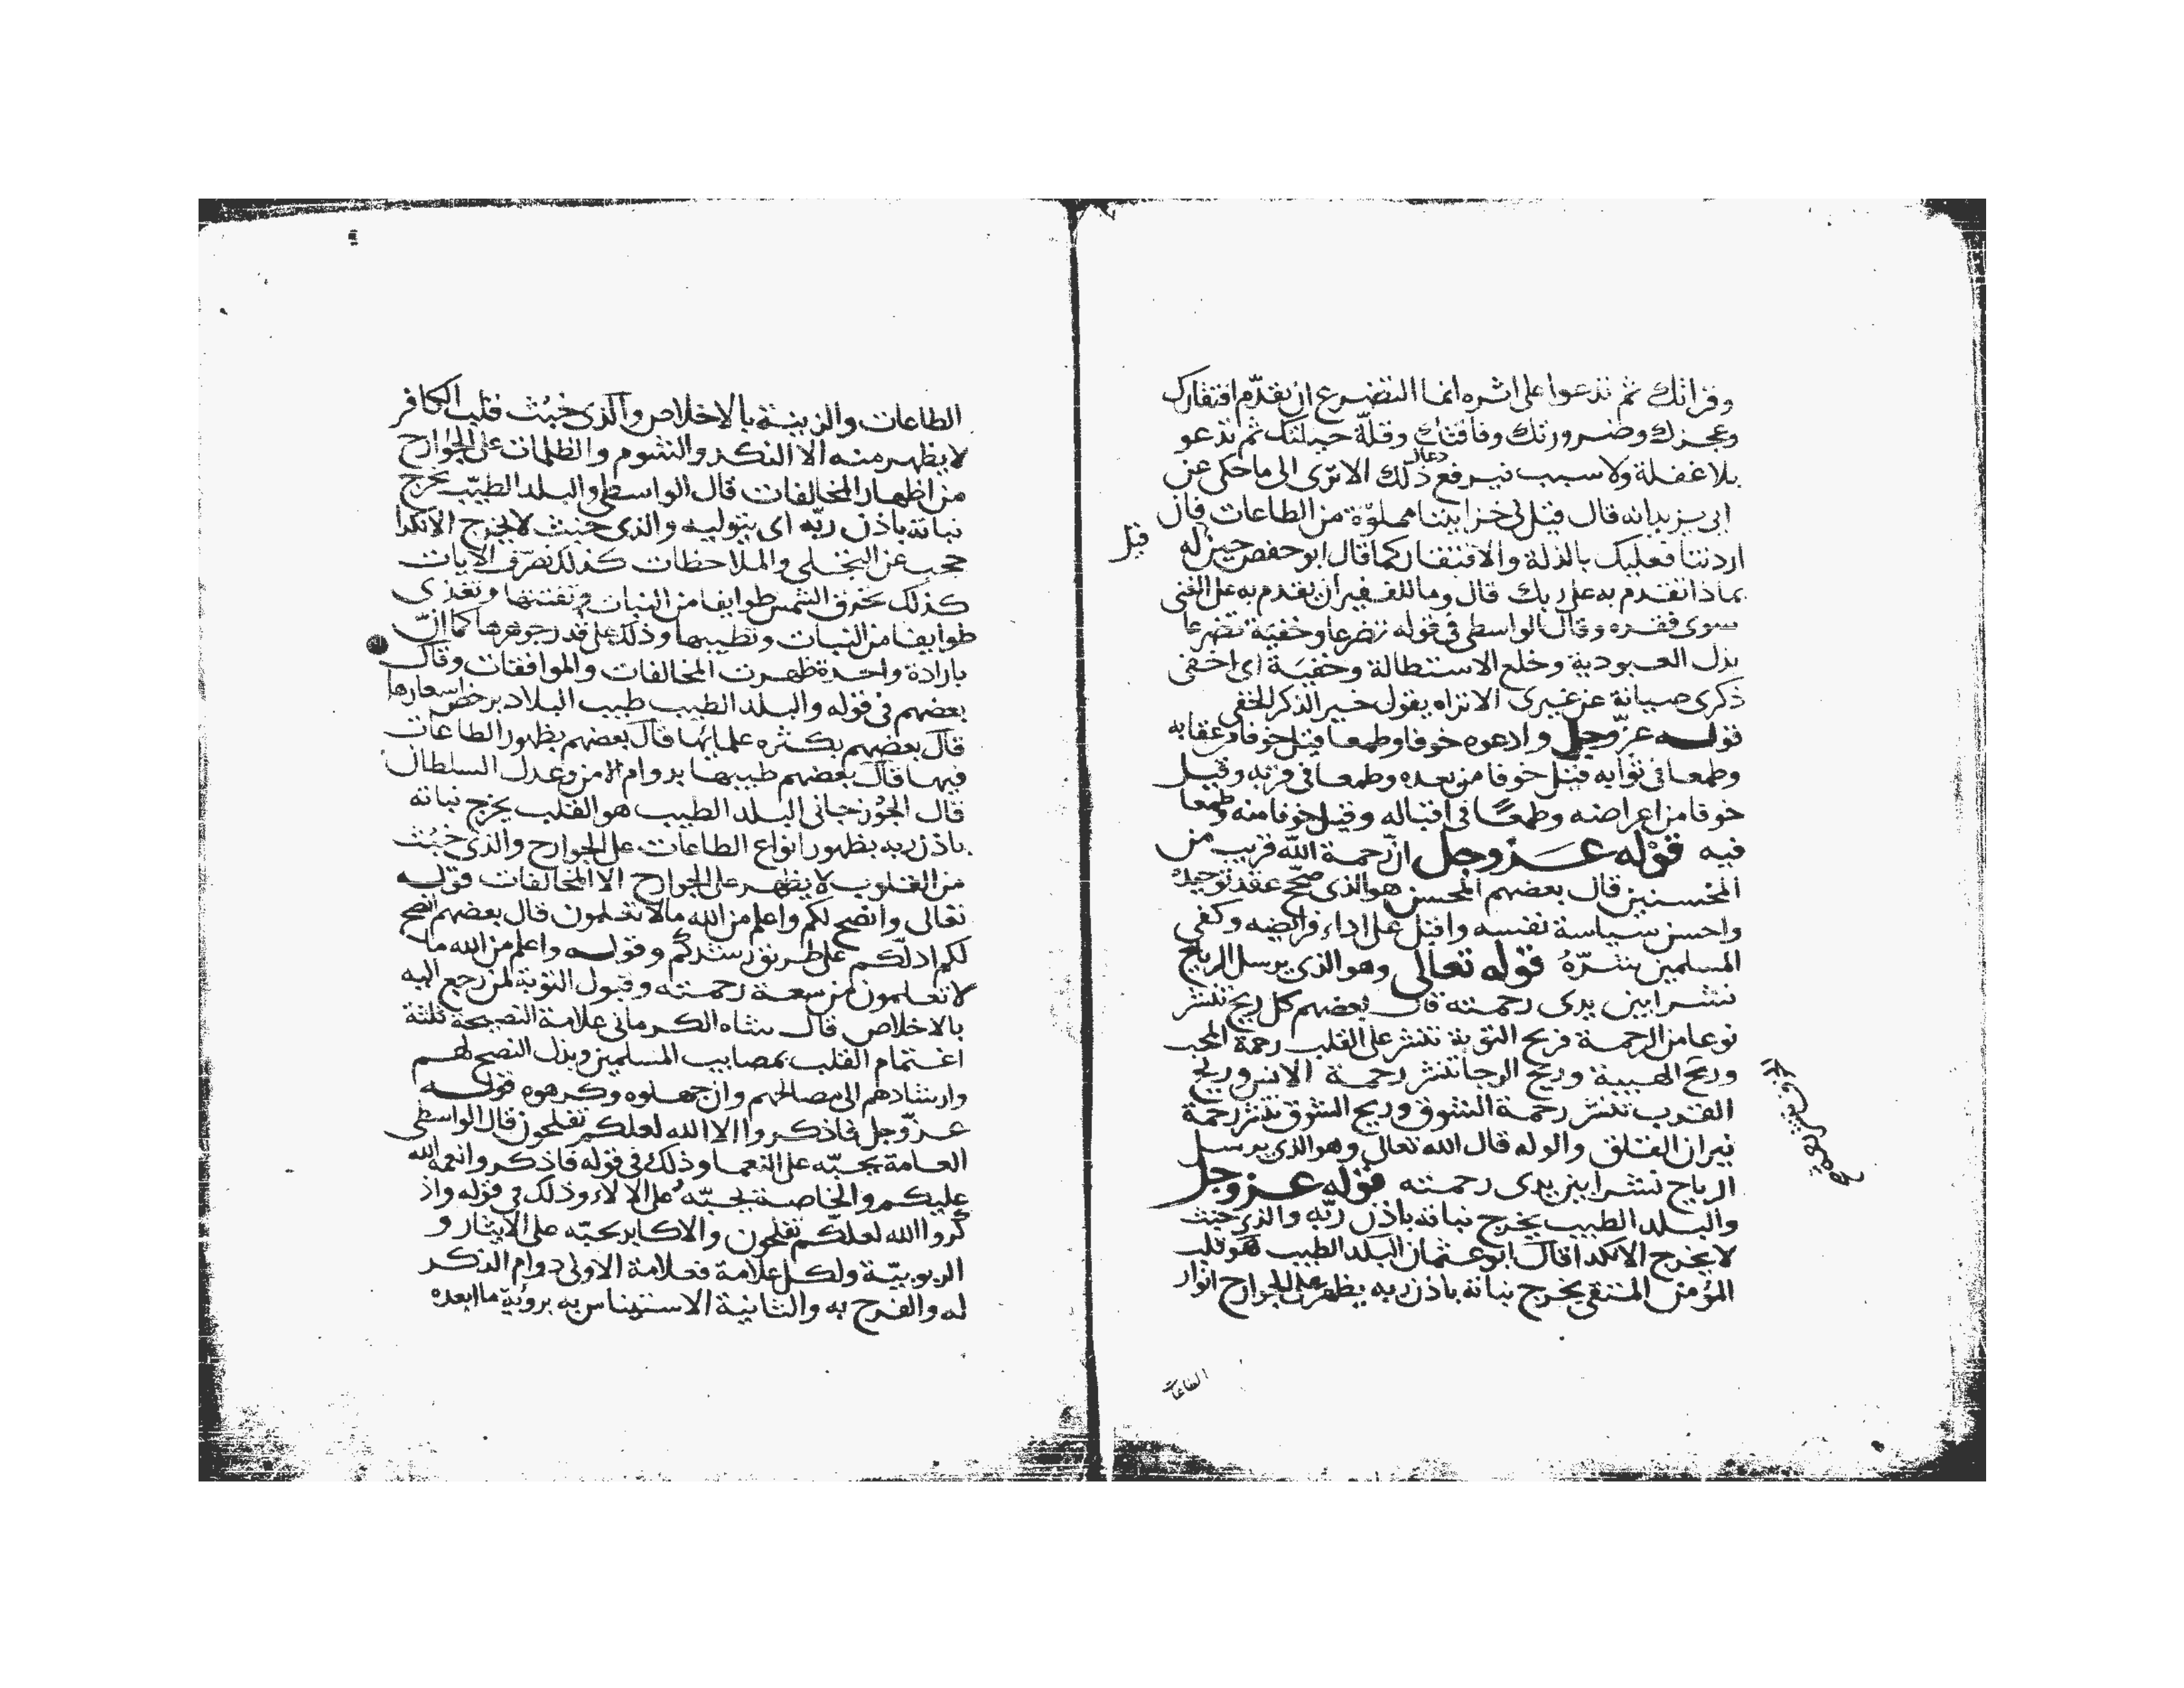 وقرااتك ثم تدعوا على اثره انما التضرع ان تقدم افتقارك
وعجزك وضرورتك وفاقتك وقلة حيلتك ثم تدعو
بلا غفلة ولا سبب فيرفع دعاك ذلك الا ترى الى ما حكى عن
ابى يزيد انه قال قيل لى خزايننا مملوّة من الطاعات فان
اردتنا فعليك بالذلة والافتقار كما قال ابو حفص حين له
قيل
بماذا تقدم به على ربك قال وما للفقير ان يقدم به على الغنى
سوى فقره وقال الواسطى فى قوله تضرعا وخفية تضرعا
بذل العبودية وخلع الاستطالة وخفية اى اخفى
ذكرى صيانة عن غيرى الا تراه يقول خير الذكر الخفى
قوله عزّ وجل وادعوه خوفا وطمعا قيل خوفا من عقابه
وطمعا فى ثوابه قيل خوفا من بعده وطمعا فى قربه وقيل
خوفا من اعراضه وطمعًا فى اقباله وقيل خوفا منه وطمعا
فيه قوله عز وجل ان رحمة الله قريب من
المحسنين قال بعضهم المحسن هو الذى صحّح عقد توحيده
واحسن سياسة نفسه واقبل على اداء فرايضه وكفى
المسلمين شرّهُ قوله تعالى وهو الذى يرسل الرياح
نشرا بين يدى رحمته قال بعضهم كل ريح تنشر
نوعا من الرحمة فريح التوبة تنشر على القلب رحمة المحبة
وريح الهيبة وريح الرجا تنشر رحمة الانس وريح
القرب تنشر رحمة الشوق وريح الشوق تنشر رحمة
نيران القلق والوله قال الله تعالى وهو الذى يرسل
الرياح نشرا بين يدى رحمته قوله عز وجل
والبلد الطيب يخرج نباته باذن ربّه والذى خبث
لا يخرج الا نكدا قال ابو عثمان البلد الطيب هو قلب
المؤمن المتقى يخرج نباته باذن ربه يظهر على الجوارح انوار
الطاعات
الطاعات والزينة بالاخلاص والذى خبُث قلب الكافر
لا يظهر منه الا النكد والشوم والظلمات على الجوارح
من اظهار المخالفات قال الواسطى والبلد الطيّب يخرج
نباته باذن ربّه اى بتوليه والذى خبث لا يخرج الا نكدا
حجب عن التجلى والملاحظات كذلك نصرّف الايات
كذلك تحرق الشمس طوايفا من النبات وتغذى
طوايفا من النبات وتطيبها وذلك على قدر جوهرها كما انّ
بارادة واحدة ظهرت المخالفات والموافقات وقال
بعضهم فى قوله والبلد الطيب طيب البلاد برخص اسعارها
قال بعضهم بكثره علمائها قال بعضهم بظهور الطاعات
فيها قال بعضهم طيبها بدوام الامن وعدل السلطان
قال الجُوزجانى البلد الطيب هو القلب يخرج نباته
باذن ربه بظهور انواع الطاعات على الجوارح والذى خبُث
من القلوب لا يظهر على الجوارح الا المخالفات قوله
تعالى وانصح لكم واعلم من الله ما لا تعلمون قال بعضهم انصح
لكم ادلّكم على طريق رشدكم وقوله واعلم من الله ما
لا تعلمون من سعة رحمته وقبول التوبة لمن رجع اليه
بالاخلاص قال شاه الكرمانى علامة النصيحة ثلثة
اغتمام القلب بمصايب المسلمين وبذل النصح لهم
وارشادهم الى مصالحهم وان جهلوه وكرهوه قوله
عزّ وجل فاذكروا الا الله لعلكم تفلحون قال الواسطى
العامة يحبّه على النعما وذلك فى قوله فاذكروا نعمة الله
عليكم والخاصة يحبّه على الالاء وذلك فى قوله واذ
كروا الله لعلّكم تفلحون والاكابر يحبّه على الايثار و
الربوبيّة ولكل علامة فعلامة الاولى دوام الذكر
له والفرح به والثانية الاستيناس به برؤية ما ابعده